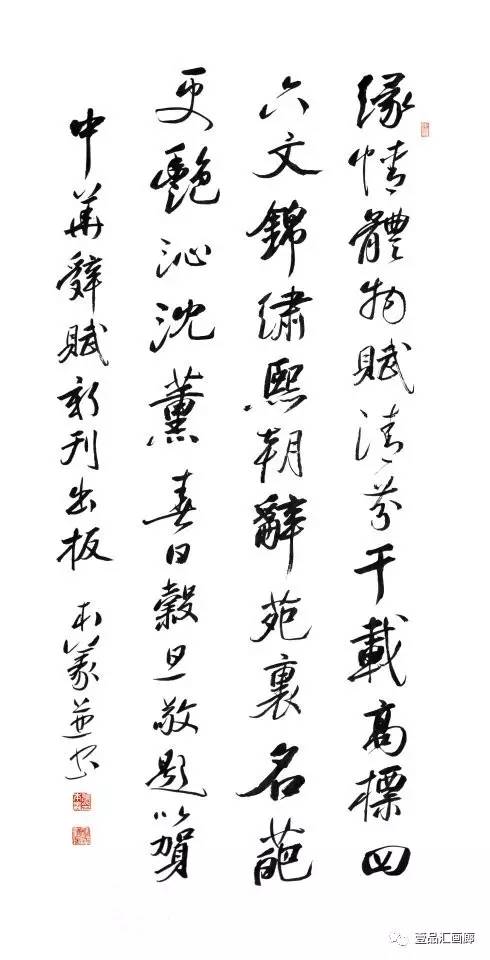 緣情體物賦清芬千載高標四
六文錦繡熙朝辭苑裏名葩
更艷沁沈薰春日穀旦敬題以賀
中華辭賦新刊出板
壹品汇画廊